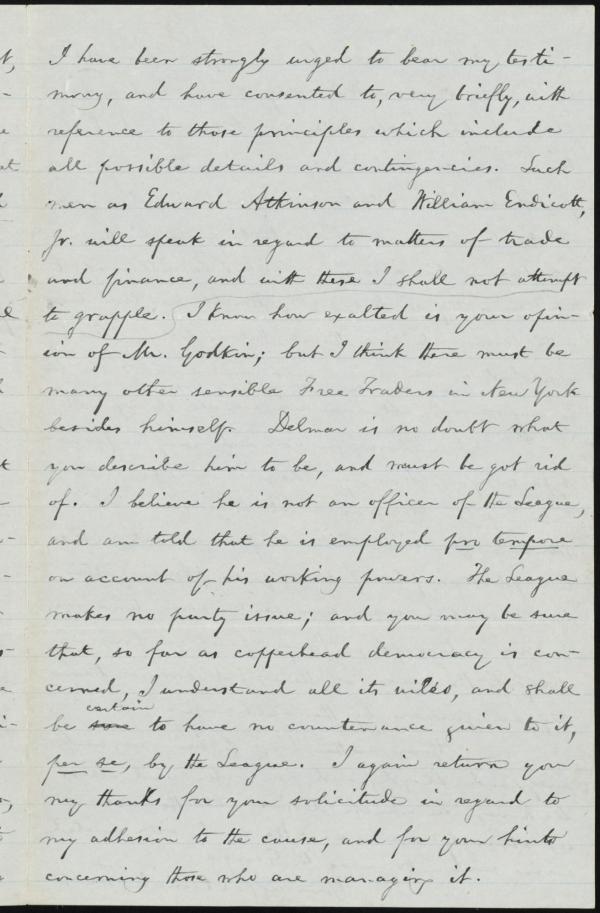 I have been strongly urged to bear my testi-
mony, and have consented to, very briefly, with
reference to those principles which include
all possible details and contingencies. Such
men as Edward Atkinson and William Endicott,
Jr. will speak in regard to matters of trade
and finance, and with these I shall not attempt
to grapple. I know how exalted is your opin-
ion of Mr. Godkin; but I think there must be
many other sensible Free Traders in New York
besides himself. Delmar is no doubt what
you describe him to be, and must be got rid
of. I believe he is not an officer of the League,
and am told that he is employed pro tempore
on account of his working powers. The League
makes no party issue; and you may be sure
that, so far as copperhead democracy is con-
cerned, I understand all its wiles, and shall
certain
be sure to have no countenance given to it,
per se, by the League. I again return you
my thanks for your solicitude in regard to
my adhesion to the cause, and for your hints
concerning those who are managing it.